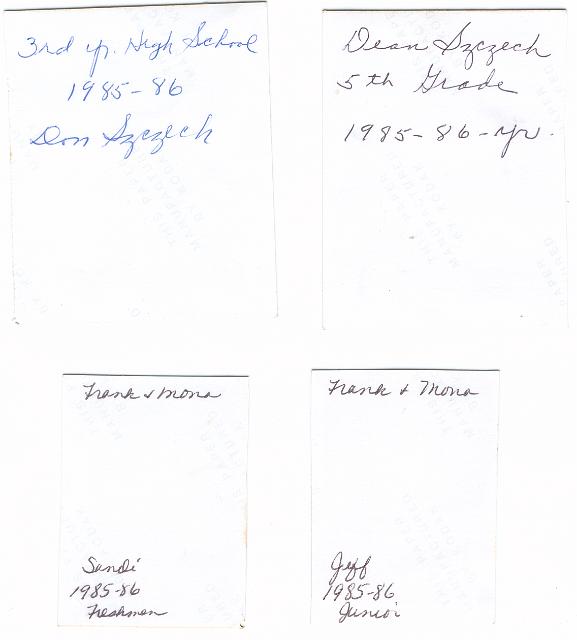 3rd yr. High School
1985-86
Don Szczech
Dean Szczech
5th Grade
1985-86-yr.
Frank & Mona
Sandi
1985-86
Freshmen
Frank + Mona
Jeff
1985-86
Junior
THIS PAPER
MANUFACTURED
BY KODAK